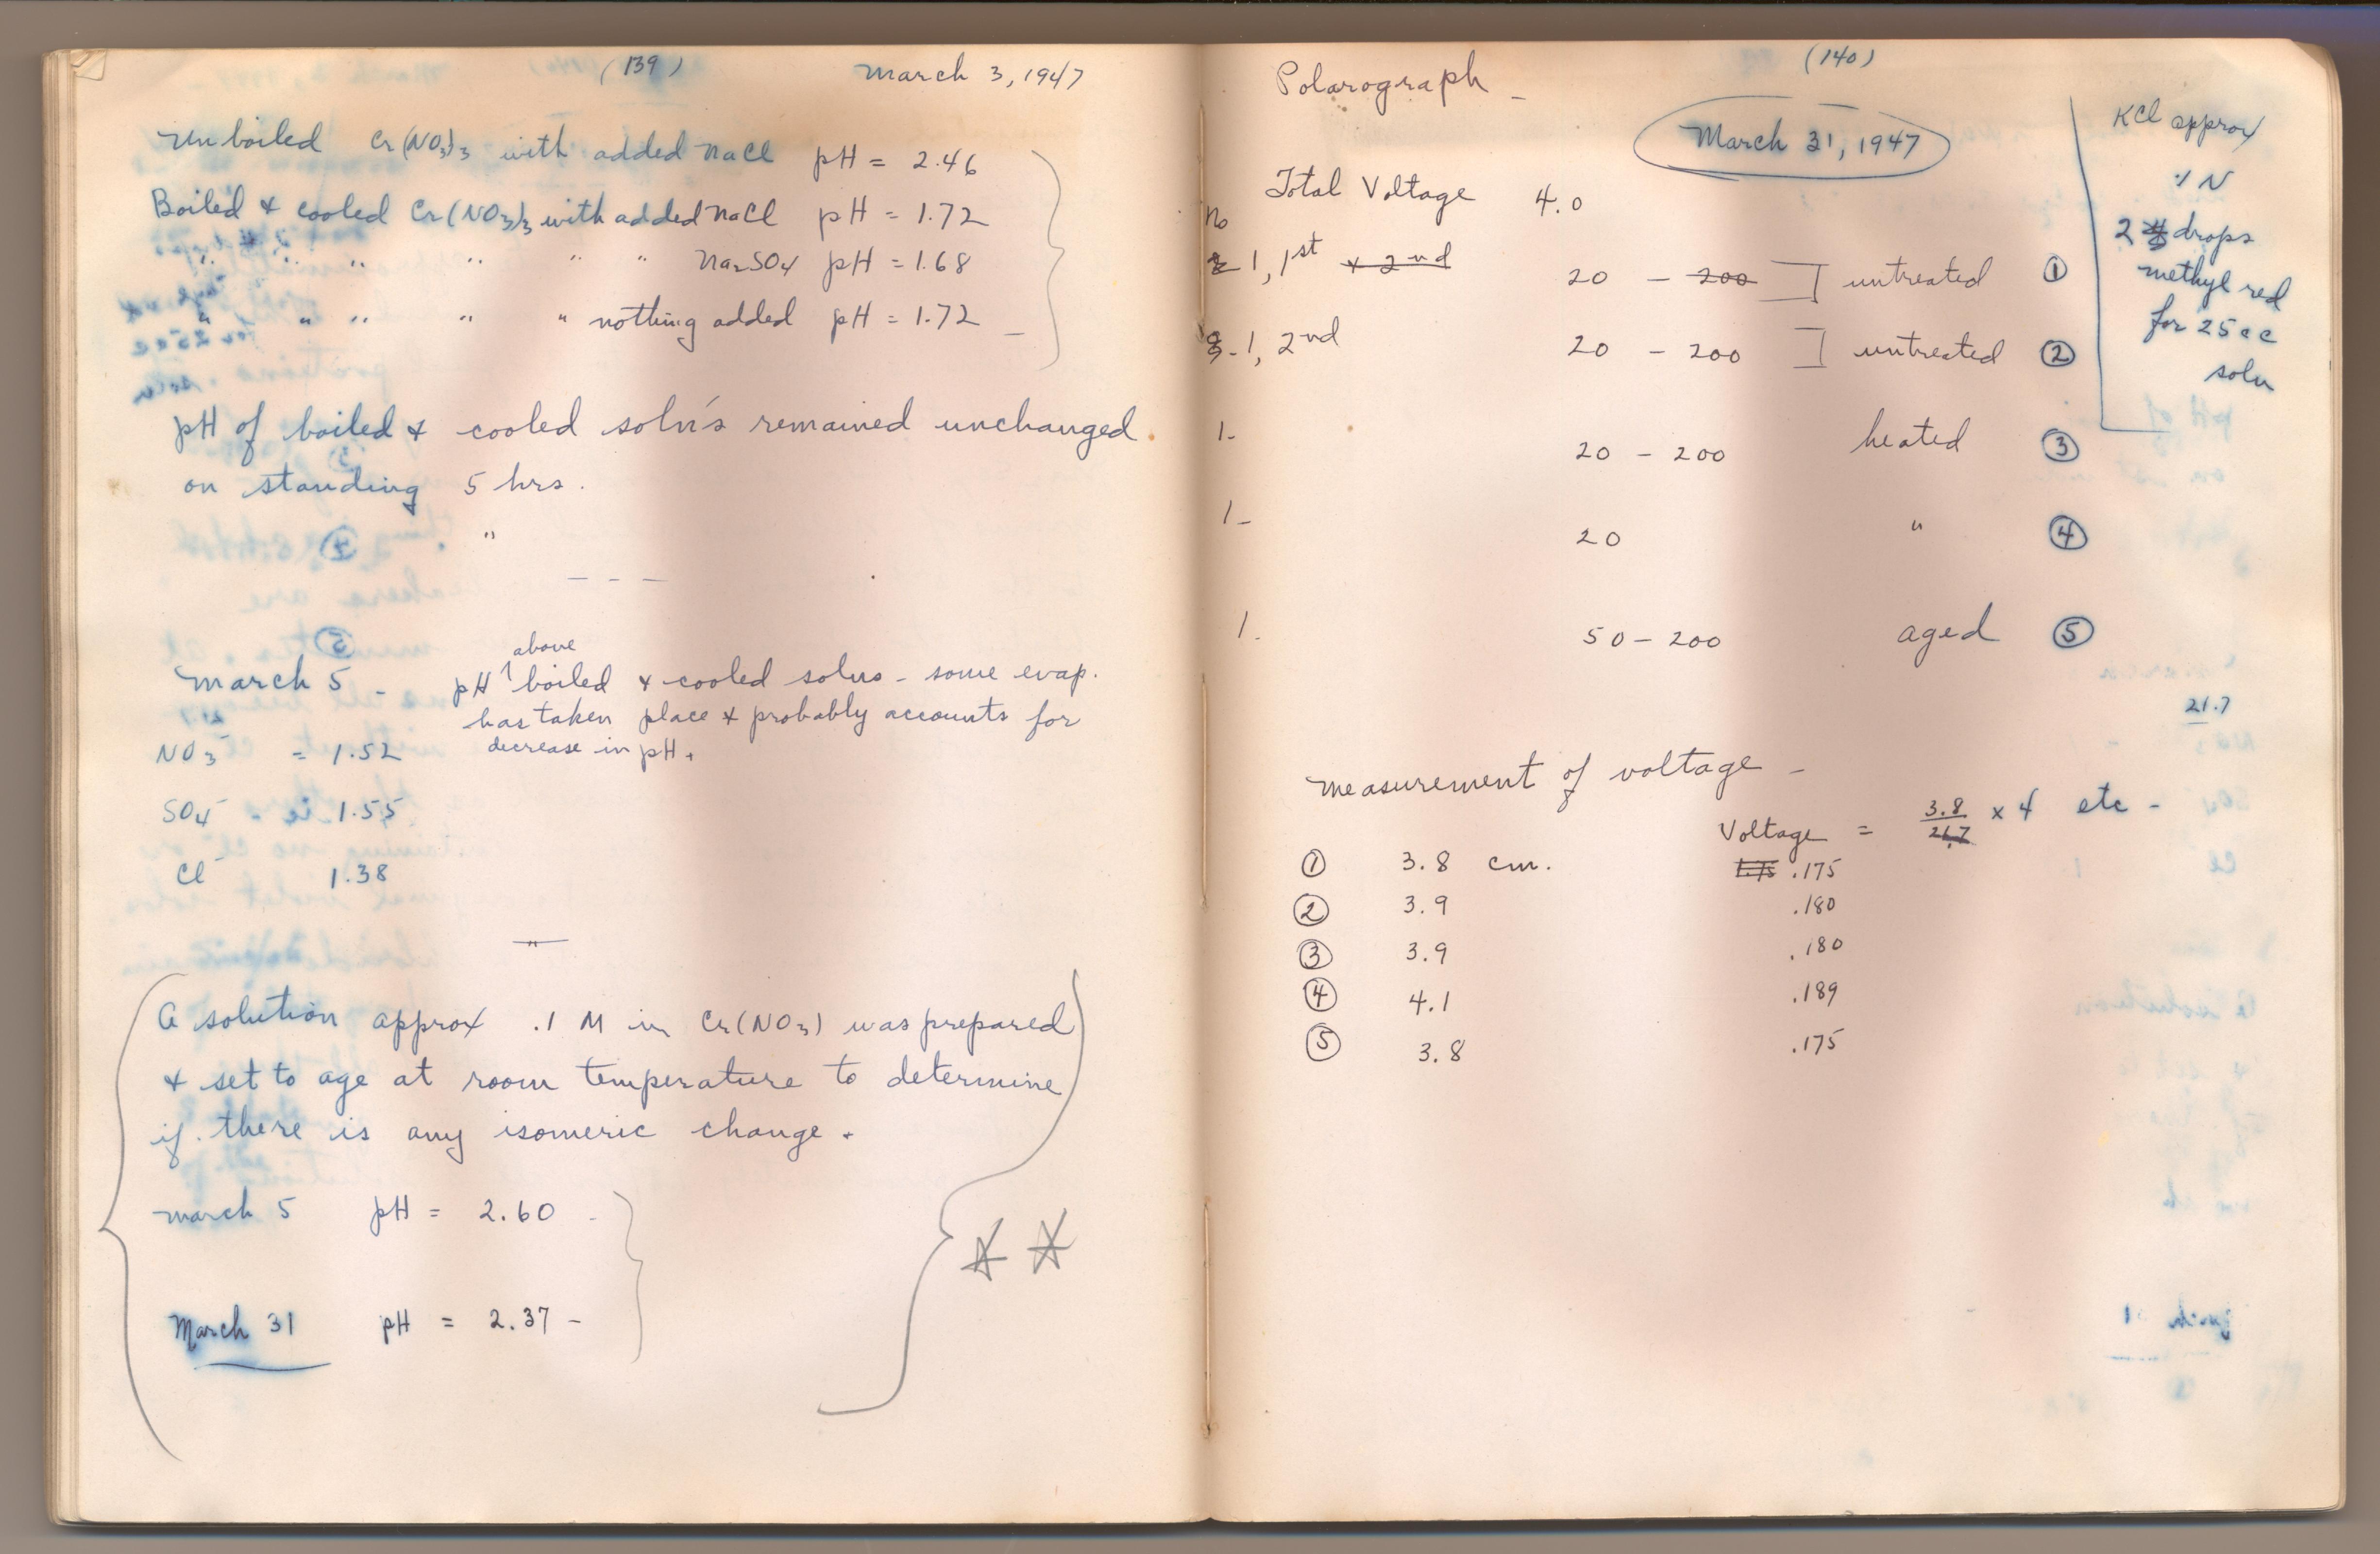 (139) March 3, 1947
Unboiled Cr(NO3)3 with added NaCl pH = 2.46
Boiled & cooled Cr(NO3)3 with added NaCl pH = 1.72
" " " " " " Na2SO4 pH = 1.68
" " " " " nothing added pH = 1.72 –
pH of boiled & cooled soln's remained unchanged.
on standing 5 hrs.
"
– – –
above
March 5 – pH boiled & cooled solns – some evap.
has taken place & probably accounts for
decrease in pH.
NO3⁻ = 1.52
SO4⁻ = 1.55
Cl⁻ 1.38
"
A solution approx .1 M in Cr(NO3) was prepared
& set to age at room temperature to determine
if there is any isomeric change.
March 5 pH = 2.60 –
March 31 pH = 2.37 –
(140)
Polarograph –
March 31, 1947
KCl approx
.1 N
2 drops
methyl red
for 25 cc
soln
Total Voltage 4.0
No
1, 1st & 2nd 20 – 200 ] untreated ①
1, 2nd 20 – 200 ] untreated ②
1– 20 – 200 heated ③
1– 20 " ④
1. 50 – 200 aged ⑤
21.7
Measurement of voltage –
Voltage = 3.8/21.7 × 4 etc –
① 3.8 cm. 1.75 .175
② 3.9 .180
③ 3.9 .180
④ 4.1 .189
⑤ 3.8 .175